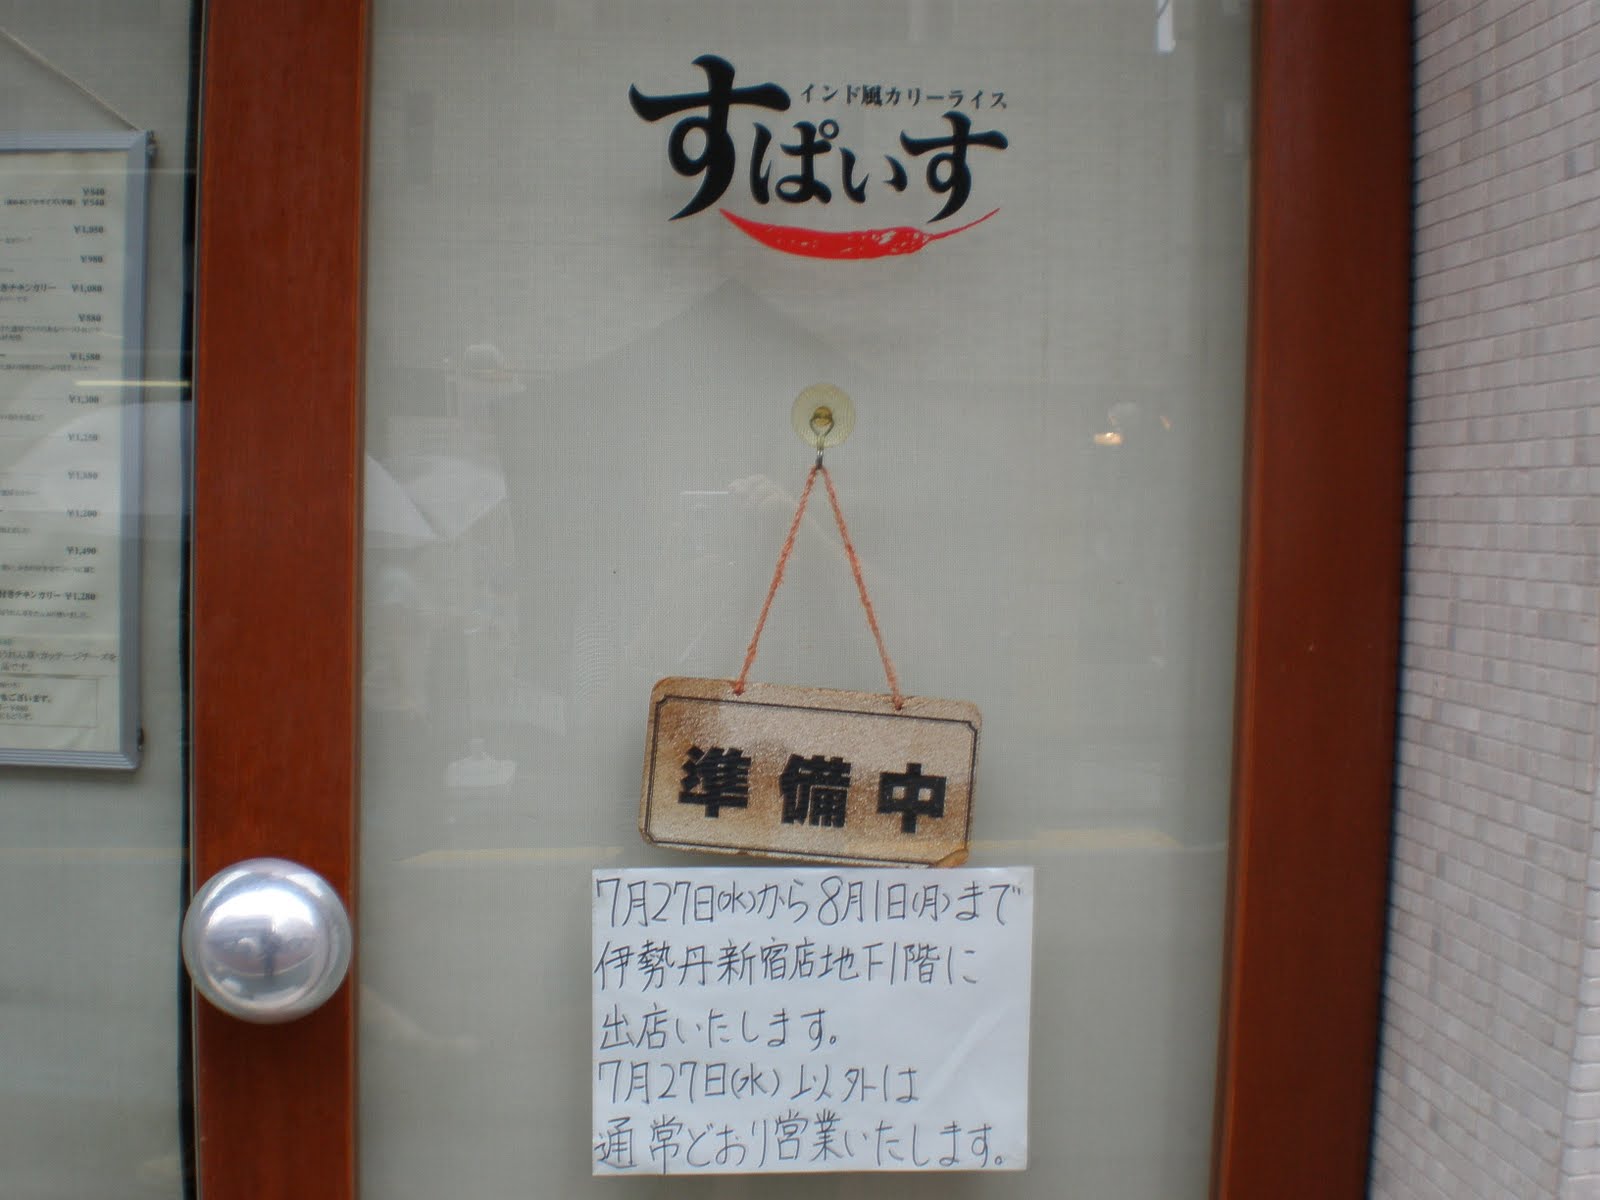 インド風カリーライス
すぱいす
準備中
7月27日(水)から8月1日(月)まで
伊勢丹新宿店地下1階に
出店いたします。
7月27日(水)以外は
通常どおり営業いたします。
¥540
¥540
¥1,050
¥980
チキンカリー ¥1,080
¥880
¥1,580
¥1,300
¥1,250
¥1,200
¥1,490
付きチキンカリー ¥1,280